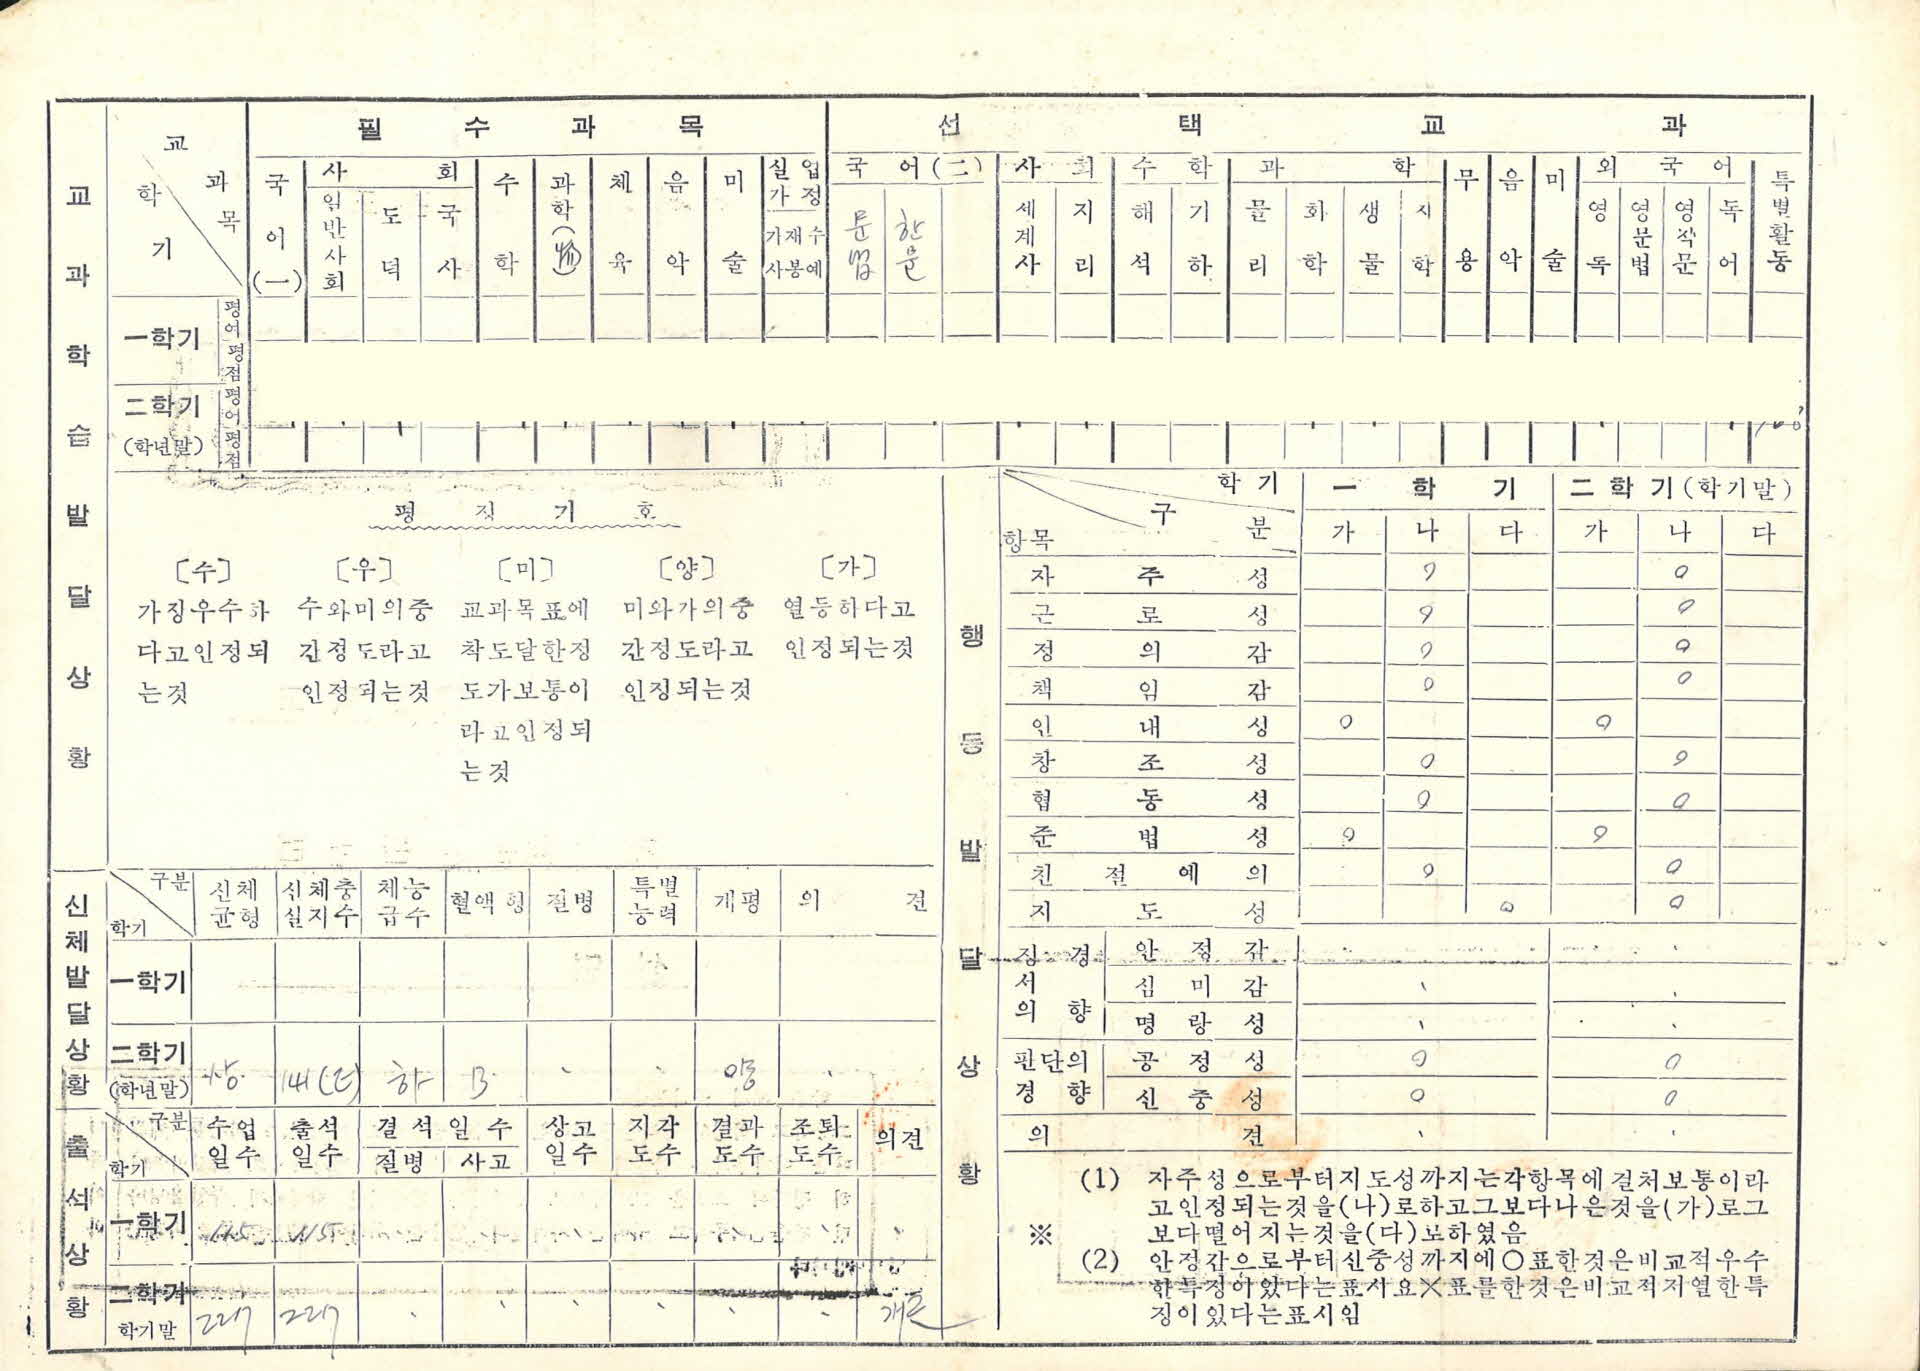 교과학습발달상황
교과목
학기
필수과목
선택교과
국어(一)
사회
일반사회
도덕
국사
수학
과학(物)
체육
음악
미술
실업가정
가재수
사봉예
국어(二)
문법
한문
사회
세계사
지리
수학
해석
기하
과학
물리
화학
생물
지학
무용
음악
미술
외국어
영독
영문법
영작문
독어
특별활동
一학기
평어
평점
二학기
(학년말)
평어
평점
평정기호
[수] [우] [미] [양] [가]
가장우수하 수와미의중 교과목표에 미와가의중 열등하다고
다고인정되 간정도라고 착도달한정 간정도라고 인정되는것
는것 인정되는것 도가보통이 인정되는것
라고인정되
는것
행동발달상황
학기
구분
항목
一학기 二학기(학기말)
가 나 다 가 나 다
자주성 ○ ○
근로성 ○ ○
정의감 ○ ○
책임감 ○ ○
인내성 ○ ○
창조성 ○ ○
협동성 ○ ○
준법성 ○ ○
친절예의 ○ ○
지도성 ○ ○
정서의경향
안정감
심미감
명랑성
판단의경향
공정성 ○ ○
신중성 ○ ○
의견
※
(1) 자주성으로부터지도성까지는각항목에걸처보통이라
고인정되는것을(나)로하고그보다나은것을(가)로그
보다떨어지는것을(다)로하였음
(2) 안정감으로부터신중성까지에○표한것은비교적우수
한특징이있다는표시요×표를한것은비교적저열한특
징이있다는표시임
신체발달상황
구분
학기
신체균형 신체충실지수 체능급수 혈액형 질병 특별능력 개평 의견
一학기
二학기
(학년말)
상 141(E) 하 B 양
출석상황
구분
학기
수업일수 출석일수 결석일수 상고일수 지각도수 결과도수 조퇴도수 의견
질병 사고
一학기 115 115
二학기
학기말
227 227 개근